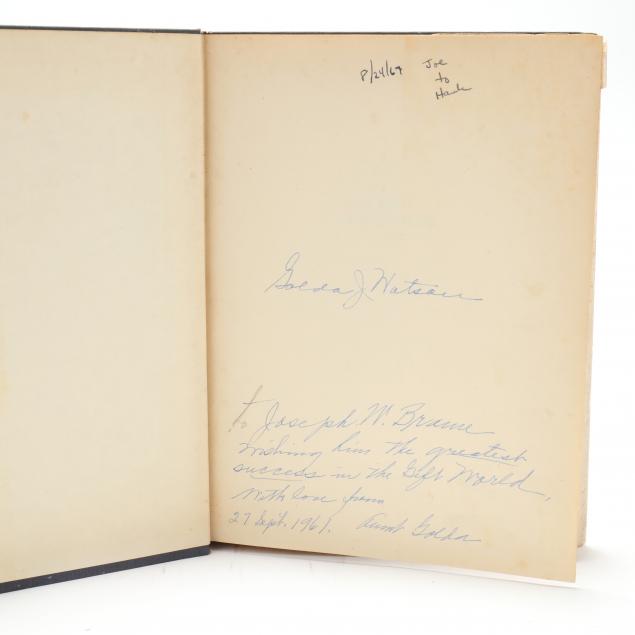 8/24/67 Joe
to
Hank
Golda J. Watson
to Joseph W. Brame
wishing him the greatest
success in the Gift World,
with love from
27 Sept. 1961. Aunt Golda